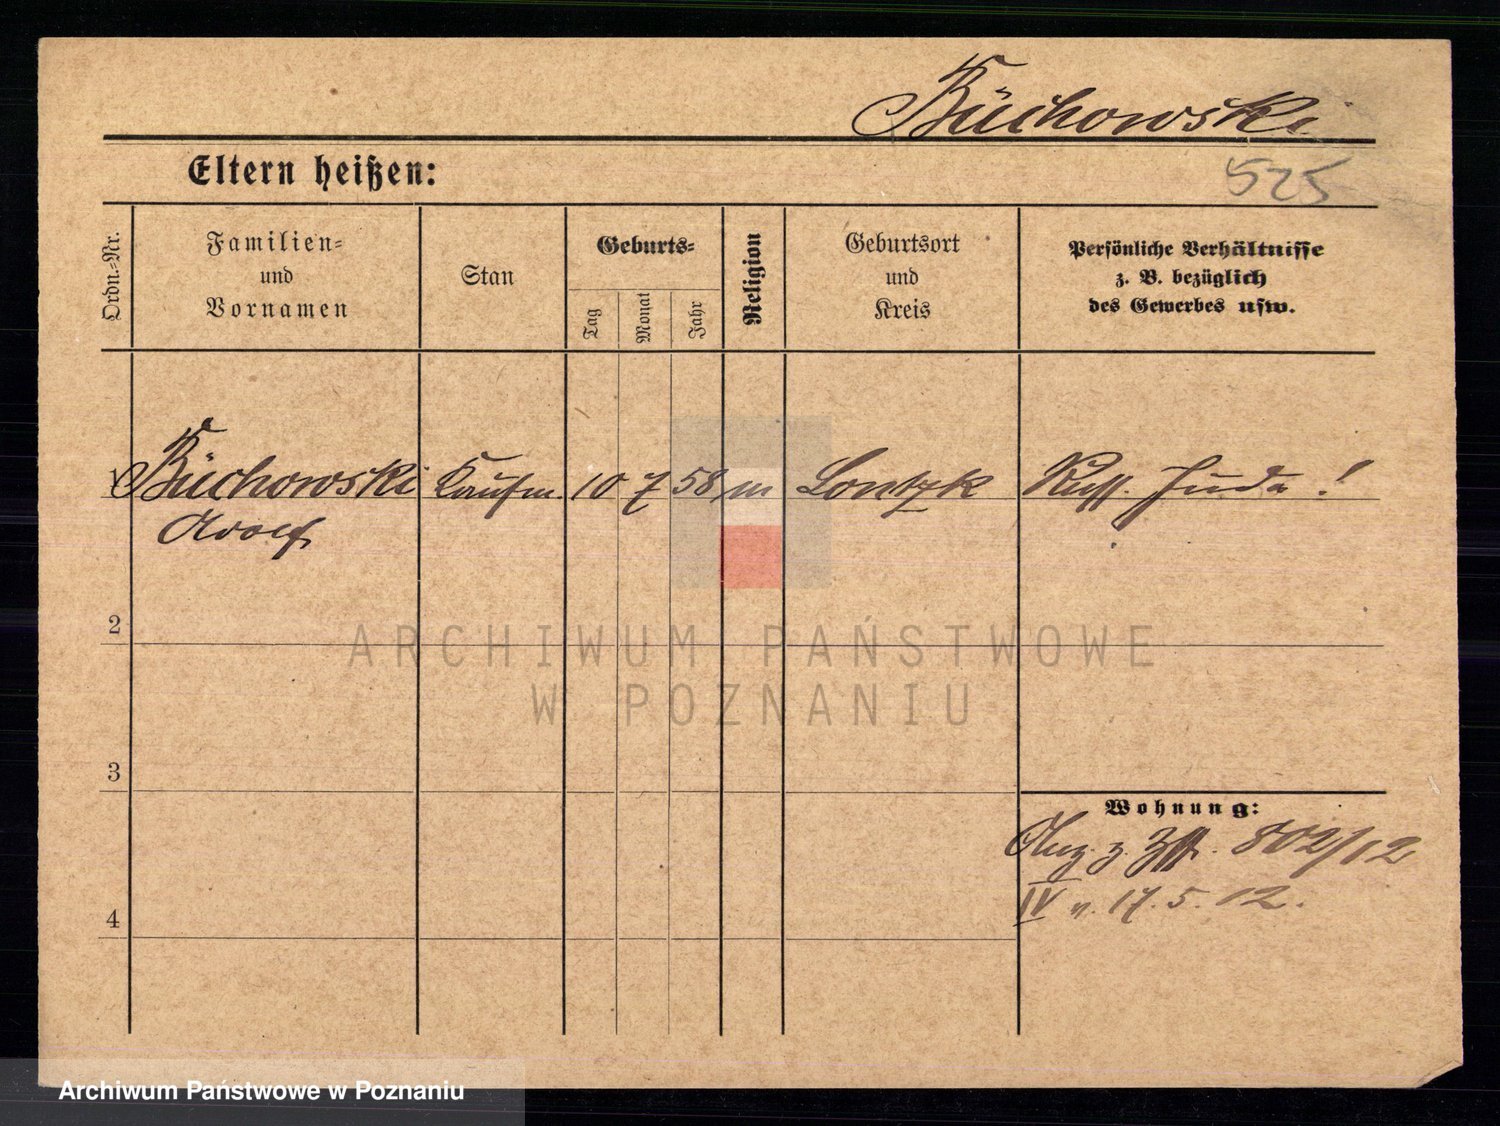 Büchowski
Eltern heißen:
525
Ordn.-Nr.
Familien-
und
Vornamen
Stan
Geburts-
Tag
Monat
Jahr
Religion
Geburtsort
und
Kreis
Persönliche Verhältnisse
z. B. bezüglich
des Gewerbes usw.
1 Büchowski Kaufm. 10 7 58 m Lontzk Russ. Jude !
Adolf
ARCHIWUM PAŃSTWOWE
W POZNANIU
2
3
Wohnung:
z. 802/12
IV v. 17.5.12.
4
Archiwum Państwowe w Poznaniu